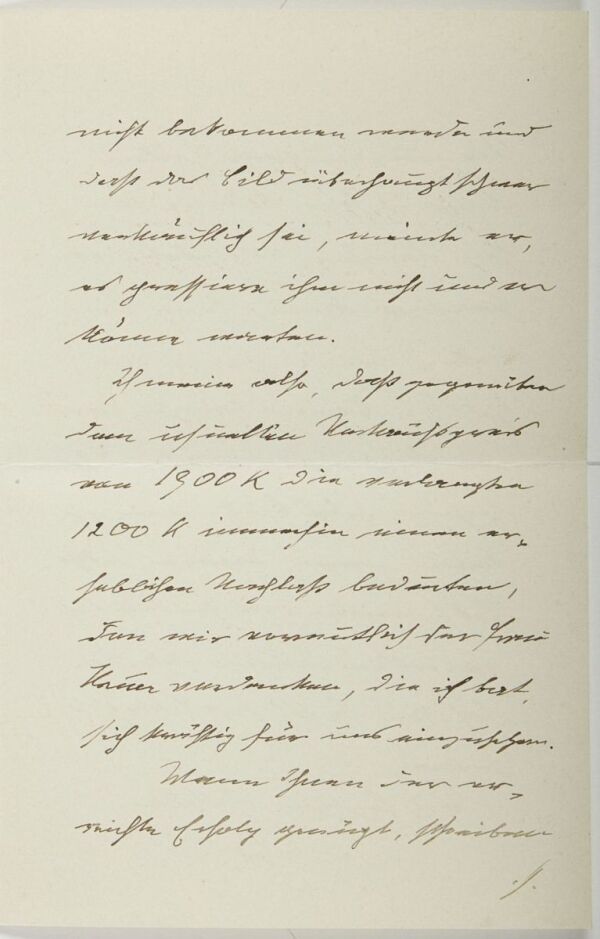 nicht bekommen werde und
dass das Bild überhaupt schwer
verkäuflich sei, meinte er,
es pressiere ihm nicht und er
könne warten.
Ich meine also, dass gegenüber
dem usuellen Verkaufspreis
von 1900 K die verlangten
1200 K immerhin einen er-
heblichen Nachlass bedeuten,
den wir vermutlich der Frau
verdanken, die ich bat,
sich kräftig für uns einzusetzen.
Wenn Ihnen der er-
reichte Erfolg genügt, schreiben
./.